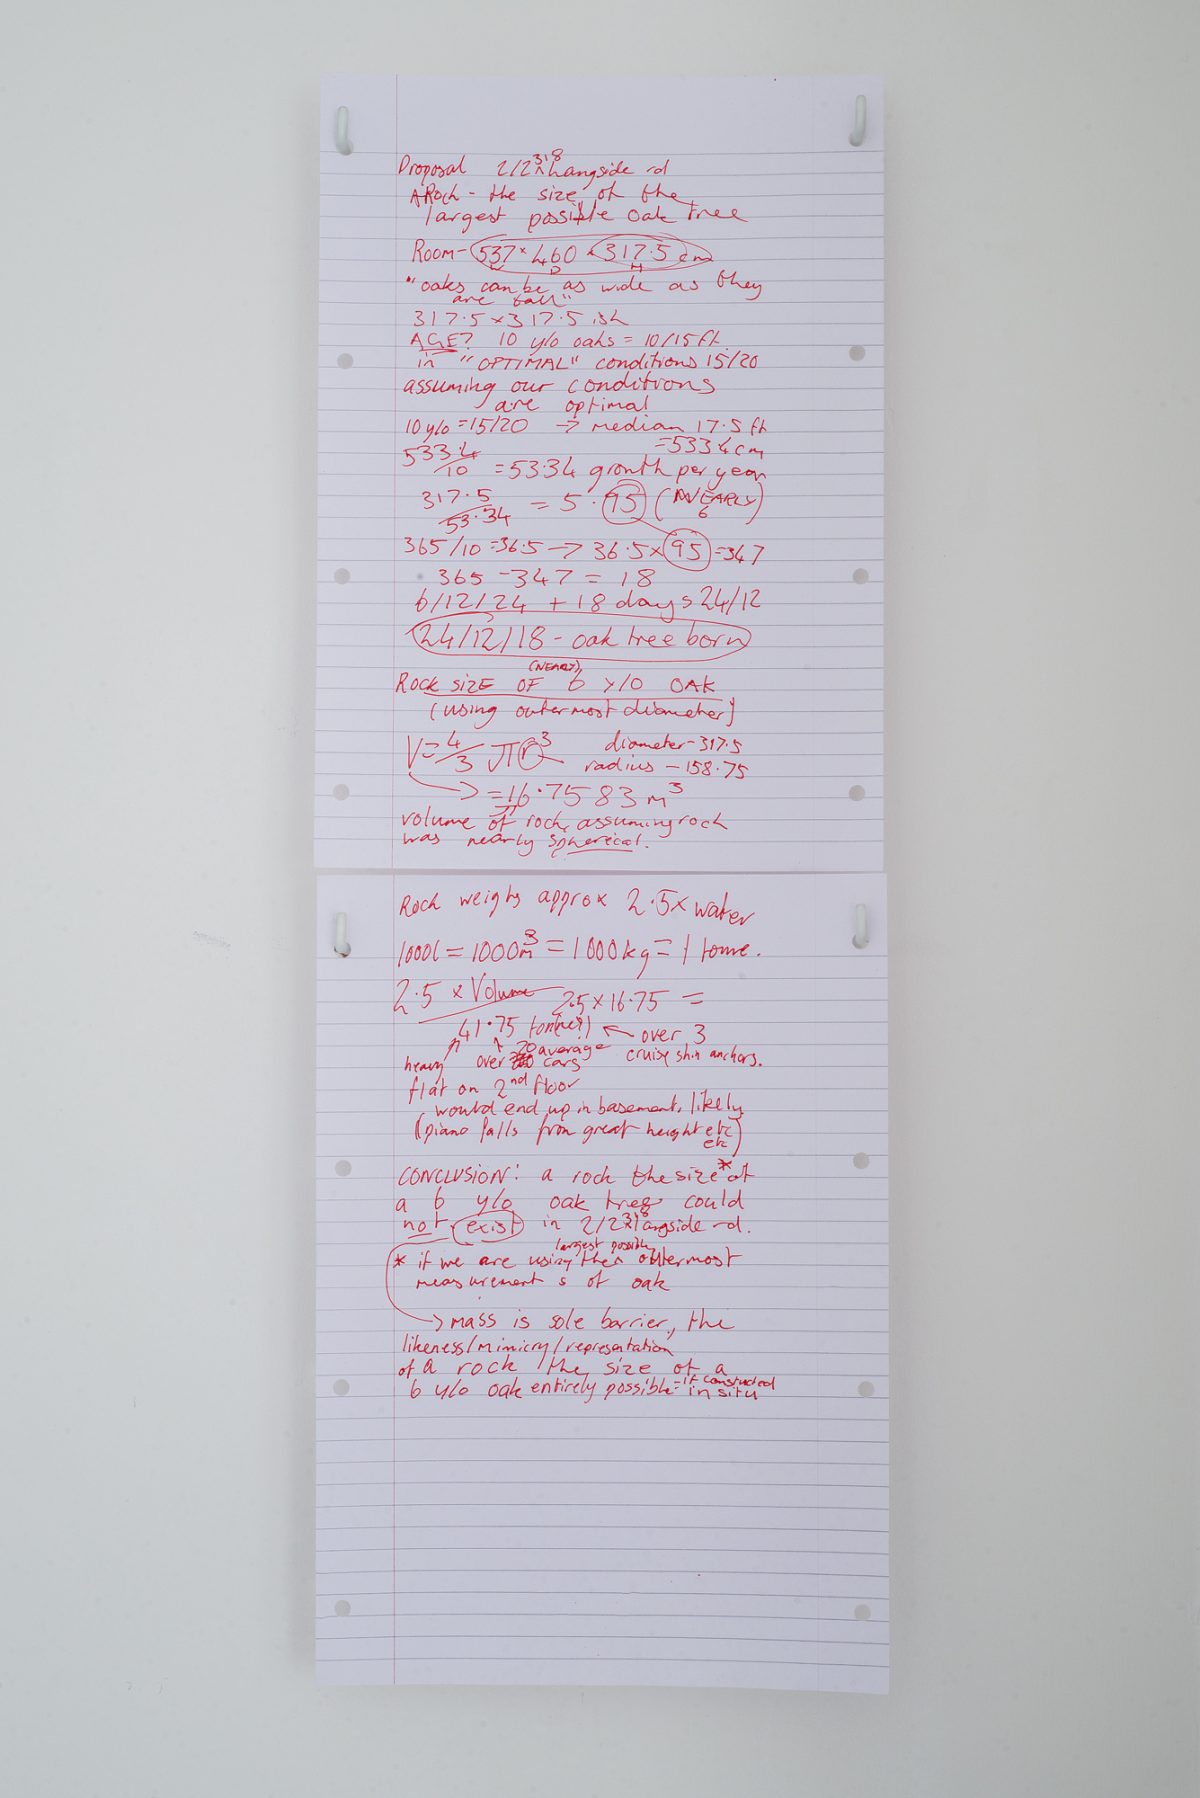 Proposal 2/2 318 Langside rd
A Rock - the size of the
largest possible oak tree
Room - 537 × 460 × 317.5 cm
W D H
"oaks can be as wide as they
are tall"
317.5 × 317.5 ish
AGE? 10 y/o oaks = 10/15 ft.
in "OPTIMAL" conditions 15/20
assuming our conditions
are optimal
10 y/o = 15/20 → median 17.5 ft
= 533.4 cm
533.4/10 = 53.34 growth per year
317.5/53.34 = 5.95 (NEARLY 6)
365/10 = 36.5 → 36.5 × 95 = 347
365 - 347 = 18
6/12/24 + 18 days 24/12
24/12/18 - oak tree born
(NEARLY)
ROCK SIZE OF 6 Y/O OAK
(using outermost diameter)
V = 4/3 πr³ diameter - 317.5
radius - 158.75
→ = 16.7583 m³
volume of rock, assuming rock
was nearly spherical.
Rock weighs approx 2.5 × water
1000l = 1000m³ = 1000kg = 1 tonne.
2.5 × Volume 2.5 × 16.75 =
41.75 ton(ne?) ← over 3
cruise ship anchors.
heavy over 20 average
cars
flat on 2nd floor
would end up in basement, likely
(piano falls from great height etc
etc)
CONCLUSION: a rock the size* of
a 6 y/o oak tree could
not exist in 2/2 318 Langside rd.
largest possible
* if we are using the outermost
measurements of oak
→ mass is sole barrier, the
likeness/mimicry/representation
of a rock the size of a
6 y/o oak entirely possible - if constructed
in situ